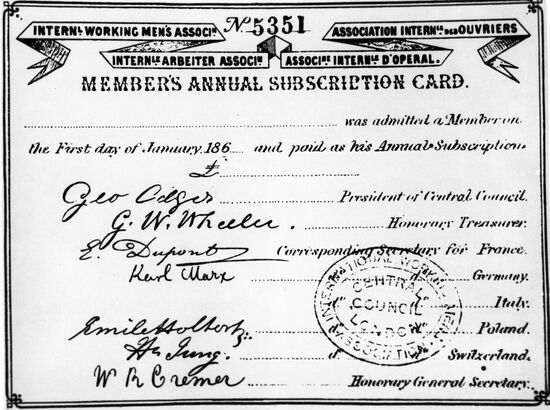 No 5351
INTERNL WORKING MEN'S ASSOCIN
ASSOCIATION INTERNLE DES OUVRIERS
INTERNLE ARBEITER ASSOCIN
ASSOCNE INTERNLE D'OPERAI.
MEMBER'S ANNUAL SUBSCRIPTION CARD.
was admitted a Member on
the First day of January 186 and paid as his Annual Subscription
£
Geo Odger President of Central Council.
G. W. Wheeler. Honorary Treasurer.
E. Dupont Corresponding Secretary for France.
Karl Marx Germany.
Italy.
Emile Holtorp Poland.
Hn Jung. Switzerland.
W R Cremer Honorary General Secretary.
INTERNATIONAL WORKING MEN'S ASSOCIATION
CENTRAL
COUNCIL
LONDON